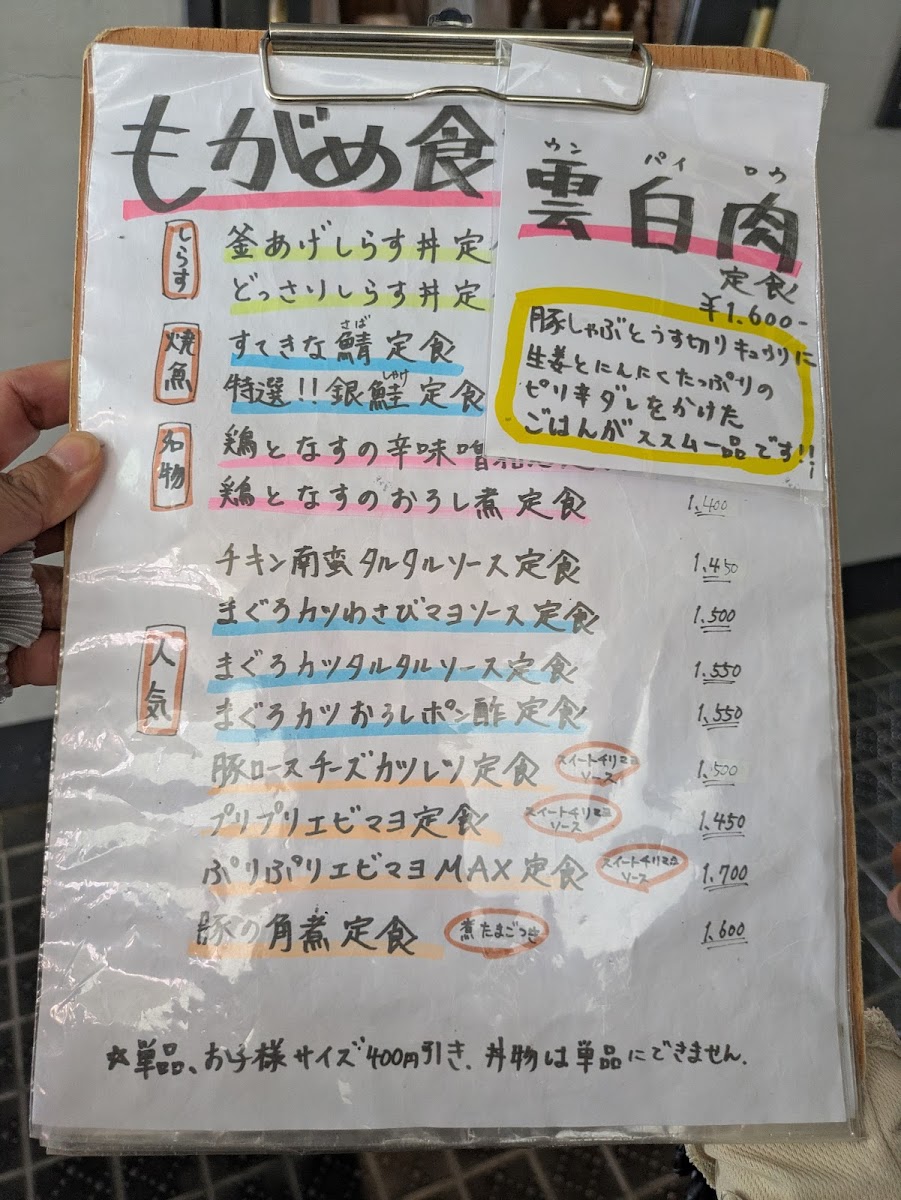 もがめ食
しらす
釜あげしらす丼定
どっさりしらす丼定
焼魚
さば
すてきな鯖定食
しゃけ
特選!!銀鮭定食
名物
鶏となすの辛味噌
鶏となすのおろし煮定食 1.400
チキン南蛮タルタルソース定食 1.450
人気
まぐろカツわさびマヨソース定食 1.500
まぐろカツタルタルソース定食 1.550
まぐろカツおろしポン酢定食 1.550
豚ロースチーズカツレツ定食 スイートチリマヨソース 1.500
プリプリエビマヨ定食 スイートチリマヨソース 1.450
ぷりぷりエビマヨMAX定食 スイートチリマヨソース 1.700
豚の角煮定食 煮たまごつき 1.600
☆単品、お子様サイズ400円引き、丼物は単品にできません.
ウン パイ ロウ
雲白肉
定食
¥1.600-
豚しゃぶとうす切りキュウリに
生姜とにんにくたっぷりの
ピリ辛ダレをかけた
ごはんがススム一品です!!